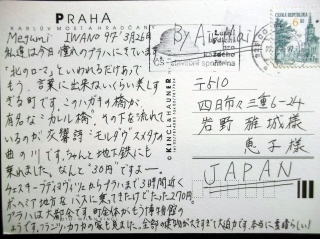 PRAHA
KARLŮV MOST A HRADČANY
Megumi IWANO 97' 3月26日
私達は今日憧れのプラハにきています。
"北のローマ"といわれるだけあって
もう、言葉に出来ないくらい美しす
ぎる町です。このハガキの橋が
有名な"カレル橋"、その下を流れて
いるのが交響詩:モルダウ スメタナの
曲の川です。ちゃんと地下鉄にも
乗れました。なんと"30円"ですよー。
チェスキーブディヨヴィツェからプラハまで3時間近く
ボヘミア地方をバスに乗ってきたけどたった270円。
プラハは大都会です。町全体がもう博物館の
ようです。フランツ・カフカの家も見ました。全部の建物が大きすぎて大迫力です。本当に素晴らしい!
© KING SCHAUNER
By Air Mail
〒510
四日市市三重6-24
岩野 雅城様
恵子様
JAPAN